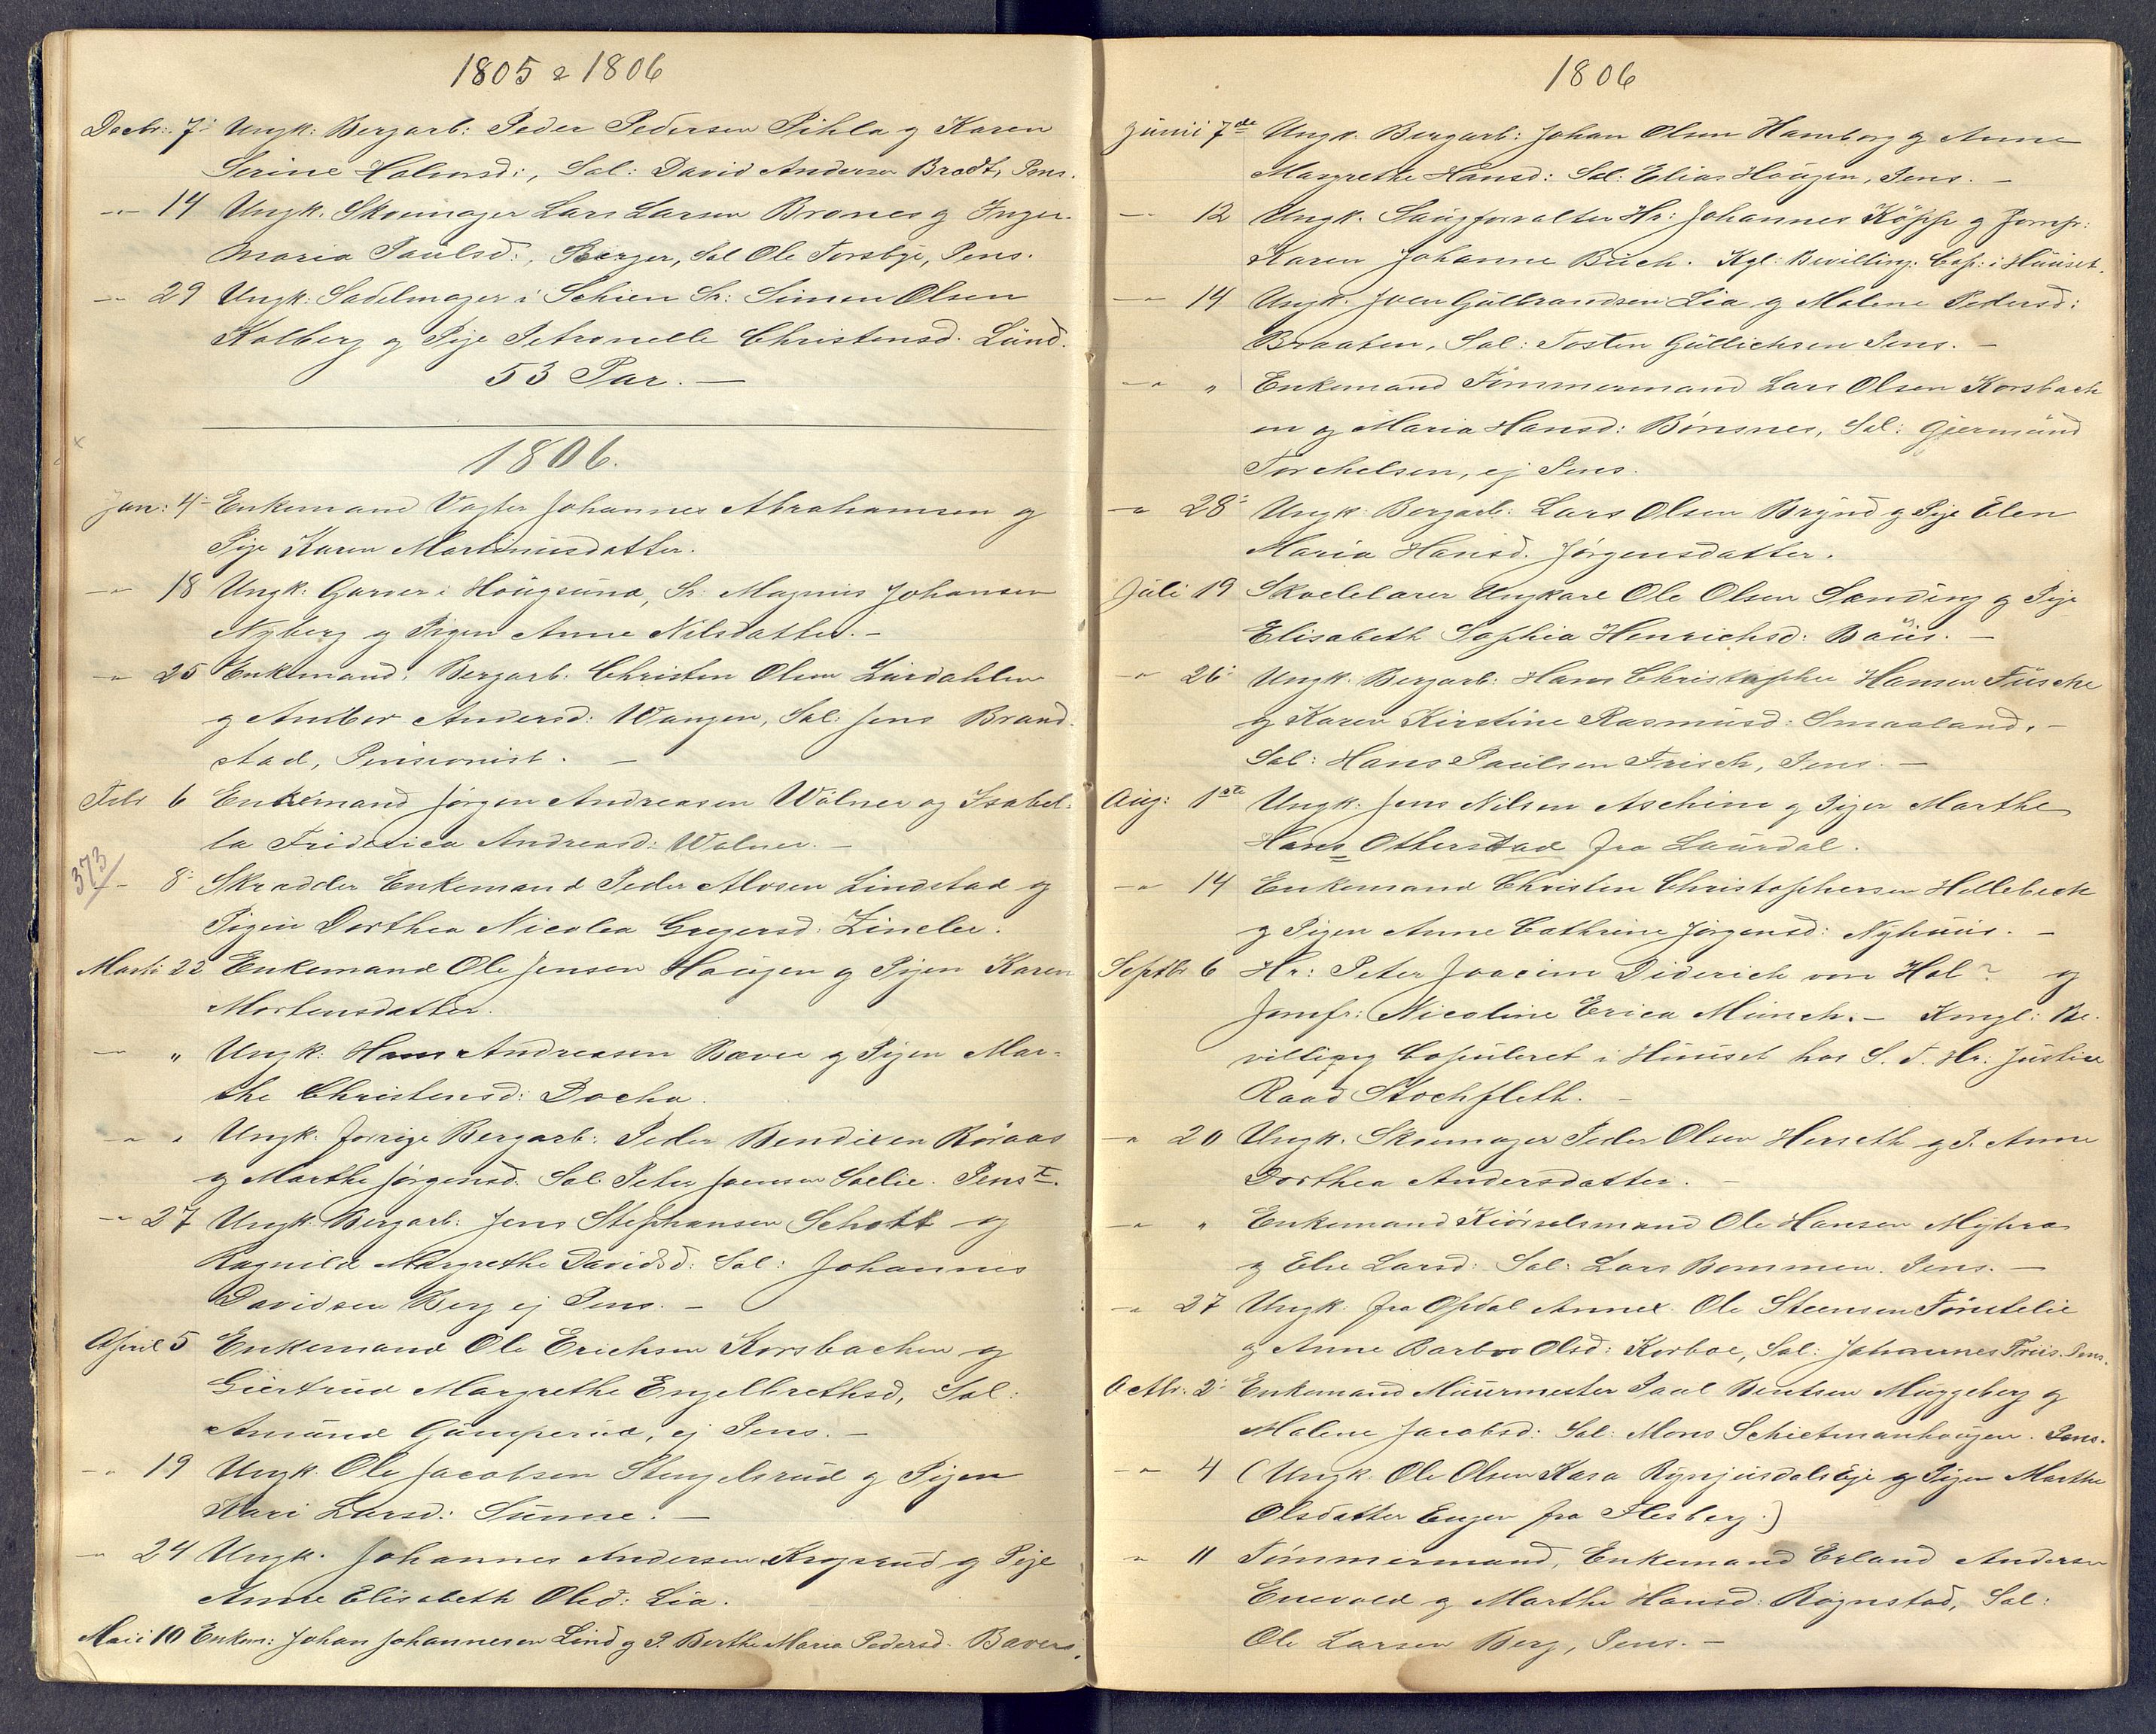 1805 & 1806
Decbr: 7: Ungk: Bergarb: Peder Pedersen Pihla og Karen
Serine Halvorsd:, Sal: David Andersen Bradt, Pens.
—"— 14 Ungk. Skoemager Lars Larsen Brones og Inger
Maria Paulsd:, Berger, Sal Ole Forsbye, Pens.
—"— 29 Ungk: Sadelmager i Schien Sr: Simen Olsen
Kolberg og Pige Petronelle Christensd. Lund.
53 Par. —
1806.
Jan: 4: Enkemand Vagter Johannes Abrahamsen og
Pige Karen Martinusdatter.
—"— 18 Ungk: Garver i Hougsund, Sr. Magnus Johansen
Nyberg og Pigen Anne Nilsdatter. —
—"— 25 Enkemand: Bergarb. Christen Olsen Lurdahlen
og Anbor Andersd: Wangen, Sal: Jens Brand-
stad, Pensionist. —
Febr 6 Enkemand Jørgen Andreasen Wölner og Isabel-
la Friderica Andreasd: Wolner. —
373
— 8: Skradder Enkemand Peder Alvsen Lindstad og
Pigen Dorthea Nicolea Gregersd: Zincler.
Marti 22 Enkemand Ole Jensen Haugen og Pigen Karen
Mortensdatter.
—"— " Ungk: Hans Andreasen Baver og Pigen Mar-
the Christensd: Docha.
—"— " Ungk: forrige Bergarb: Peder Bendixen Röraas
og Marthe Jörgensd. Sal: Peter Joensen Saelie. Penst.
—"— 27 Ungk. Bergarb: Jens Stephansen Schott og
Ragnild Margrethe Davidsd: Sal: Johannes
Davidsen Berg ej Pens. —
April 5 Enkemand Ole Erichsen Korsbachen og
Giertrud Margrethe Engelbrethsd, Sal:
Amund Gamperud, ej Pens. —
—"— 19 Ungk. Ole Jacobsen Stengelsrud og Pigen
Kari Larsd: Sunne. —
—"— 24 Ungk. Johannes Andersen Krogsrud og Pige
Anne Elisabeth Olsd: Lia.
Maii 10 Enkem: Johan Johannesen Lind og P. Berthe Maria Pedersd. Bavers.
1806
Junii 7de Ungk. Bergarb: Johan Olsen Hamborg og Anne
Margrethe Hansd: Sal: Elias Haugen, Pens. —
—"— 12 Ungk. Saugforvalter Hr: Johannes Köpp og Jomfr:
Karen Johanne Buch. Kgl: Bevilling. Cop: i Huuset.
—"— 14 Ungk. Joen Gulbrandsen Lia og Malene Pedersd:
Braaten, Sal: Tosten Gullichsen Pens. —
—"— " Enkemand Tømmermand Lars Olsen Korsbach
en og Maria Hansd: Bönsnes, Sal: Gjermund
Torchelsen, ej Pens.
—"— 28: Ungk: Bergarb: Lars Olsen Brynd og Pige Elen
Maria Hansd. Jörgensdatter.
Juli 19 Skoelelærer Ungkarl Ole Olsen Sanding og Pige
Elisabeth Sophia Henrichsd: Baus. —
—"— 26: Ungk. Bergarb: Hans Christopher Hansen Fusche
og Karen Kirstine Rasmusd: Smaaland. —
Sal: Hans Paulsen Frisch, Pens. —
Aug: 1ste Ungk. Jens Nilsen Aschim og Pigen Marthe
Hans Otterstad fra Laurdal.
—"— 14 Enkemand Christen Christophersen Hellebeck
og Pigen Anne Cathrine Jørgensd: Nyhuus. —
Septbr 6 Hr: Peter Joacim Diderich von Hol? og
Jomfr: Nicoline Erica Münch. — Kongl: Be-
villing Copuleret i Huuset hos S. T. Hr: Justice
Raad Stochfleth. —
—"— 20 Ungk. Skomager Peder Olsen Herseth og P. Anne
Dorthea Andersdatter. —
—"— " Enkemand Kiörselsmand Ole Hansen Myhra
og Else Larsd: Sal: Lars Bommen. Pens. —
—"— 27 Ungk. fra Opdal Annex Ole Steensen Tönstelie
og Anne Barbro Olsd: Korboe, Sal: Johannes Friis. Pens.
Octbr. 2: Enkemand Muurmester Paal Bentsen Muggeberg og
Malene Jacobsd: Sal: Mons Schietmanhougen. Pens.
—"— 4 (Ungk. Ole Olsen Kasa Rynjusdals Eje og Pigen Marthe
Olsdatter Engen fra Flesberg.)
" 11 Tömmermand, Enkemand Erland Andersen
Enevold og Marthe Hansd: Rognstad, Sal:
Ole Larsen Berg, Pens. —